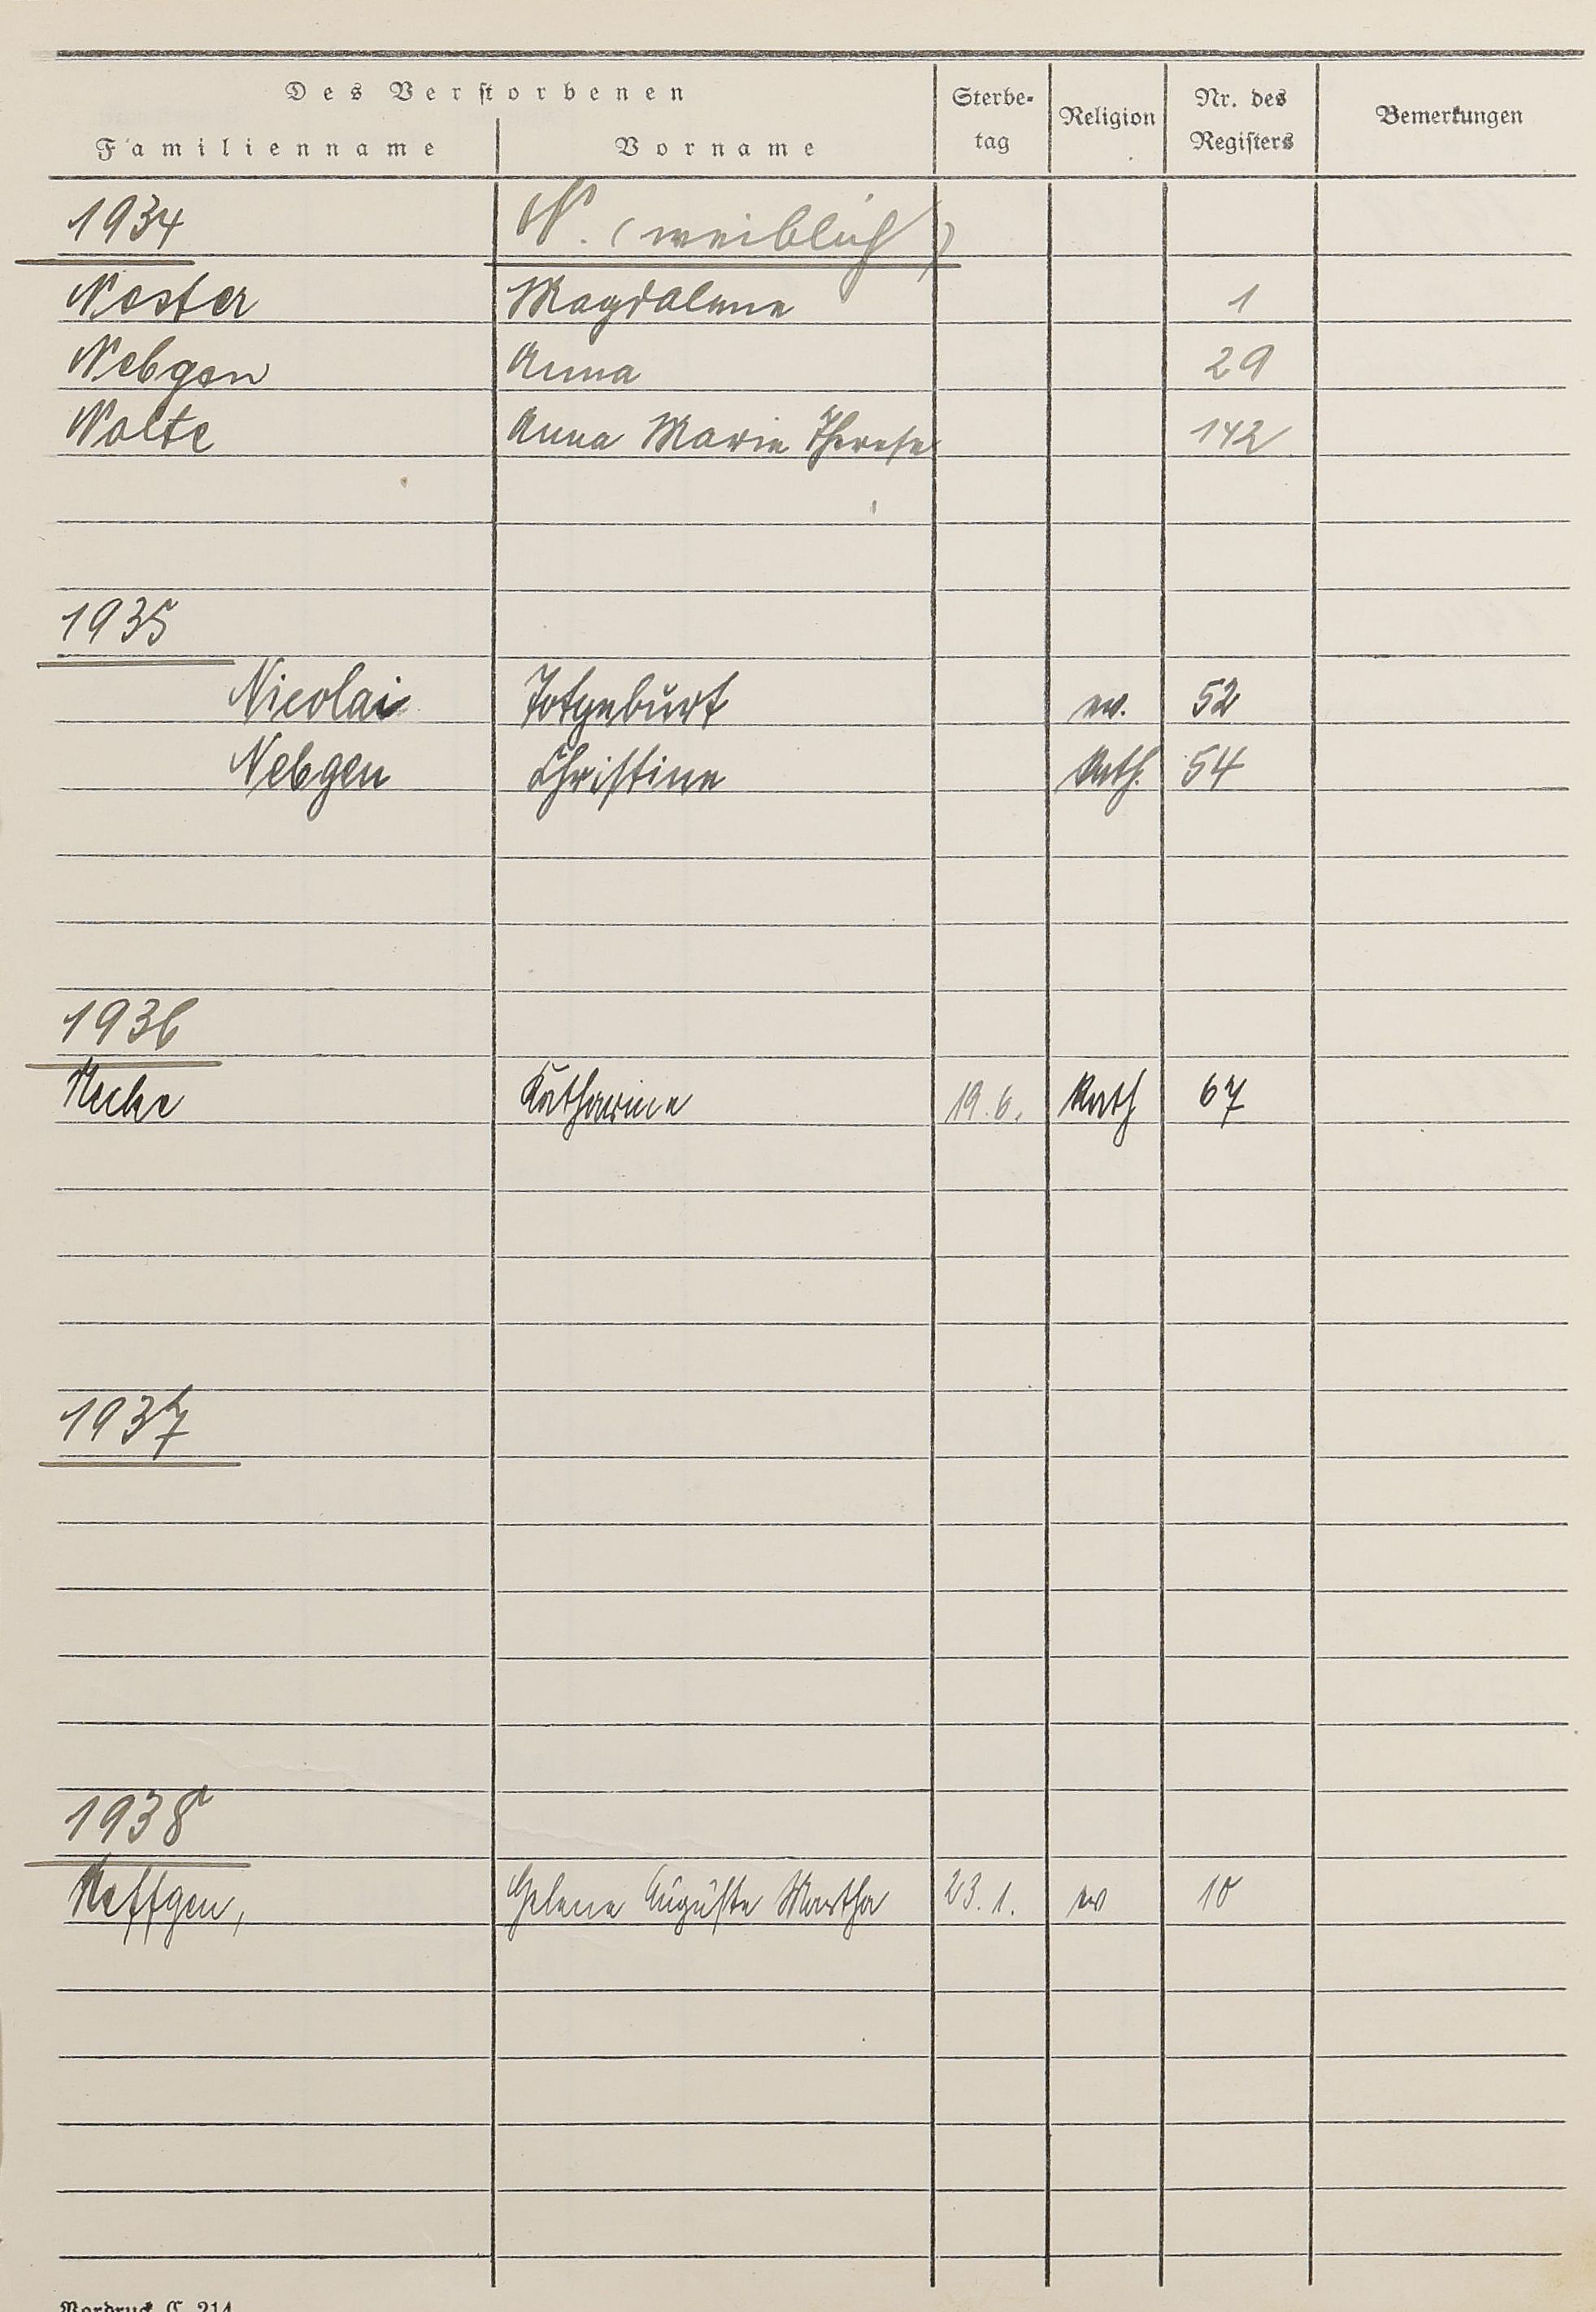 Des Verstorbenen
Familienname Vorname Sterbe-tag Religion Nr. des Registers Bemerkungen
1934 N. (weiblich)
Nester Magdalene 1
Nebgen Anna 29
Nolte Anna Maria Therese 142
1935
Nicolai Totgeburt ev. 52
Nebgen Christine Kath. 54
1936
Katharina 19.6. Kath 67
1937
1938
Neffgen, Helene Auguste Martha 23.1. ev 10
Vordruck C 214